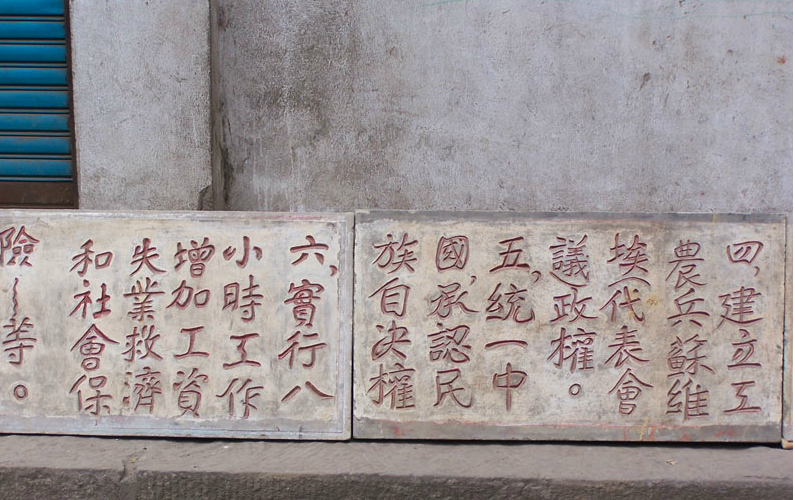 四，建立工
農兵蘇維
埃（代表會
議）政權。
五，統一中
國，承認民
族自決權
六，實行八
小時工作
增加工資
失業救濟
和社會保
險～等。